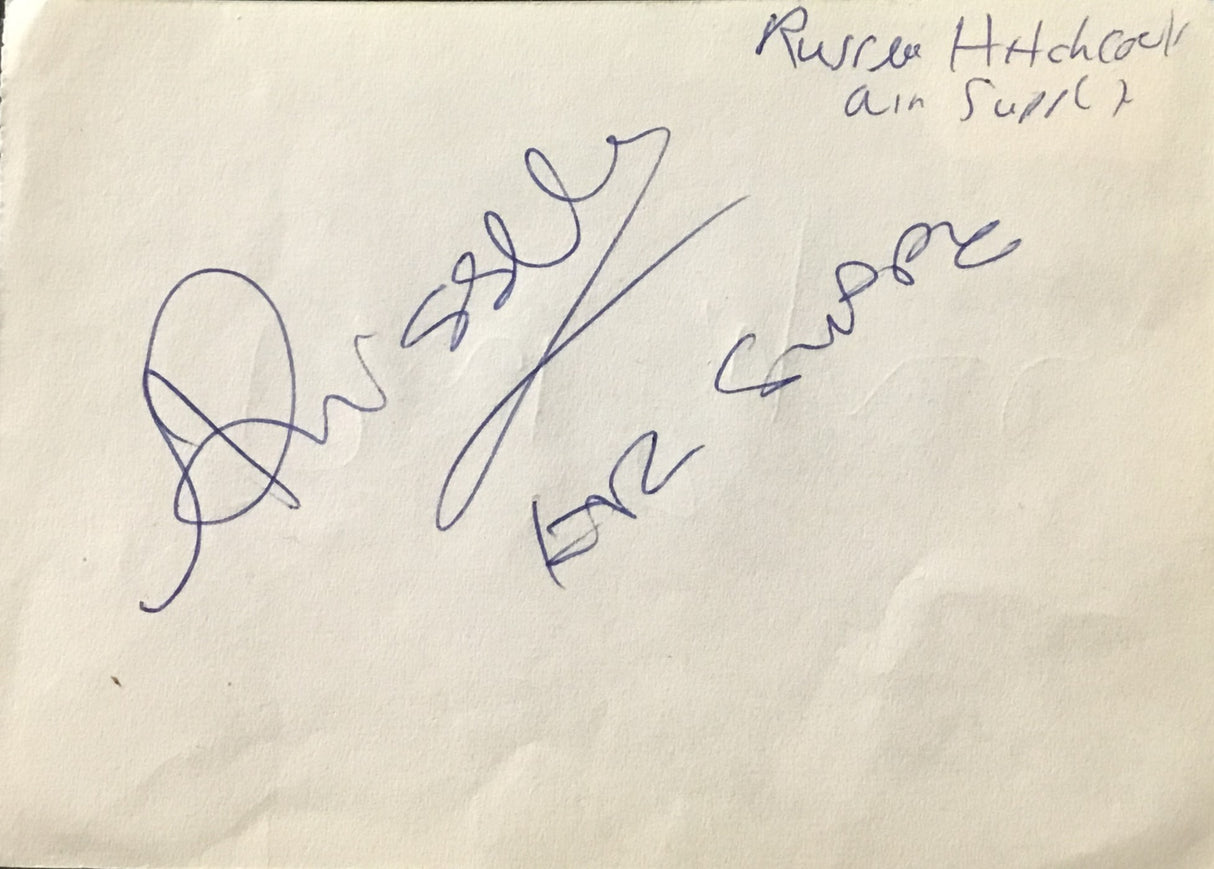 Russell Hitchcock
Air Supply
Russell
Air Supply